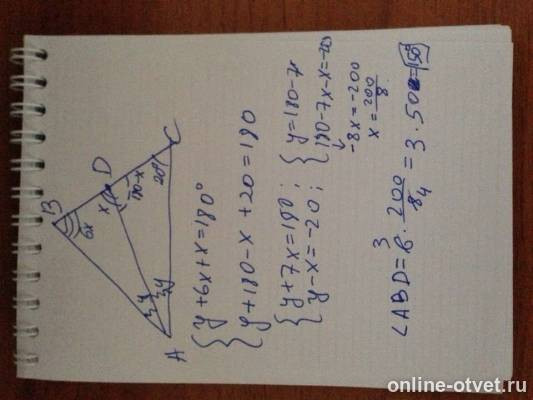 B
6x
x
D
180-x
20°
C
y
y
A
y+6x+x=180°
y+180-x+20=180
y+7x=180;
y-x=-20;
y=180-7x
180-7x-x=-20
-8x=-200
x=200/8
∠ABD=6·200/8=3·50=150
3
4
online-otvet.ru